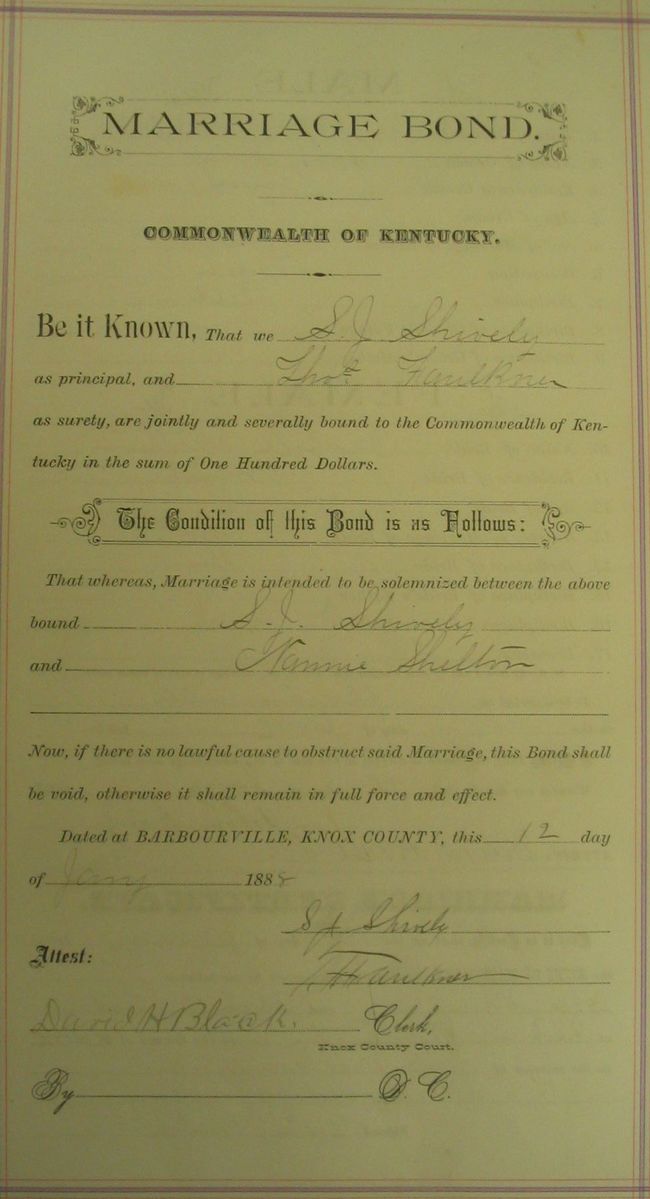 MARRIAGE BOND.
COMMONWEALTH OF KENTUCKY.
Be it Known, That we S. J. Shively
as principal, and Thos. Faulkner
as surety, are jointly and severally bound to the Commonwealth of Ken-
tucky in the sum of One Hundred Dollars.
The Condition of this Bond is as Follows:
That whereas, Marriage is intended to be solemnized between the above
bound S. J. Shively
and Nannie Shelton
Now, if there is no lawful cause to obstruct said Marriage, this Bond shall
be void, otherwise it shall remain in full force and effect.
Dated at BARBOURVILLE, KNOX COUNTY, this 12 day
of Jany 1888
S J Shively
Attest:
T Faulkner
David H Black. Clerk,
Knox County Court.
By D. C.